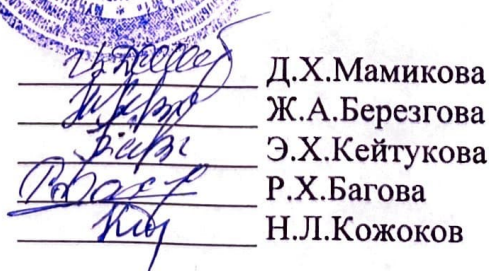 Д.Х.Мамикова
Ж.А.Березгова
Э.Х.Кейтукова
Р.Х.Багова
Н.Л.Кожоков